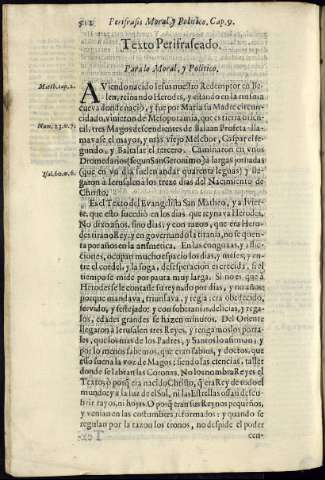 512 Perifrasis Moral, y Politico, Cap. 9.
Texto Perifraseado.
Para lo Moral, y Politico.
Matth. cap. 2.
AViendo nacido Iesus nuestro Redemptor en Be-
len, reinando Herodes, y estando en la misma
cueva donde nació, y fue por Maria su Madre circun-
cidado, vinieron de Mesopotamia, que es tierra orien-
Num. 23. n. 7.
tal, tres Magos descendientes de Balaan Profeta: lla-
mavase el mayor, y mas viejo Melchor, Gaspar el se-
gundo, y Baltasar el tercero. Caminaron en vnos
Dromedarios (segun San Geronimo) à largas jornadas
Isai. 60. n. 6.
(que en vn dia suelen andar quarenta leguas) y lle-
garon à Ierusalen los treze dias del Nacimiento de
Christo.
Es el Texto del Evangelista San Matheo, y advier-
te, que esto sucediò en los dias que reynava Herodes.
No dixo años, sino dias; y con razon, que era Hero-
des tirano Rey: y en governando la tirania, no se quen-
ta por años en la arismetica. En las congojas, y aflic-
ciones, ocupan mucho espacio los dias, y meses; y en-
tre el cordel, y la soga, desesperacion es crecida, si el
tiempo se mide por pauta muy larga. Si no es que à
Herodes se le contasse su reynado por dias, y no años;
porque mandava, triunfava, y regia; era obedecido,
servido, y festejado: y con sobrarios, delicias, y rega-
los, edades grandes se hazen minutos. Del Oriente
llegaron à Ierusalen tres Reyes, y tengamoslos por ta-
les, que los mas de los Padres, y Santos lo afirman: y
por lo menos sabemos, que eran sabios, y doctos, que
esso suena la voz de Magos; siendo las ciencias, taller
donde se labran las Coronas. No los nombra Reyes el
Texto, ò porq̃ era nacido Christo, q̃ era Rey de todo el
mundo: y a la luz de el Sol, ni las Estrellas osan descu-
brir rayos, ni hoyas. O porq̃ eran sus Reynos pequeños,
y venian en las costumbres reformados: y quando se
regulan por la razon los tronos, no despide el poder
cen-